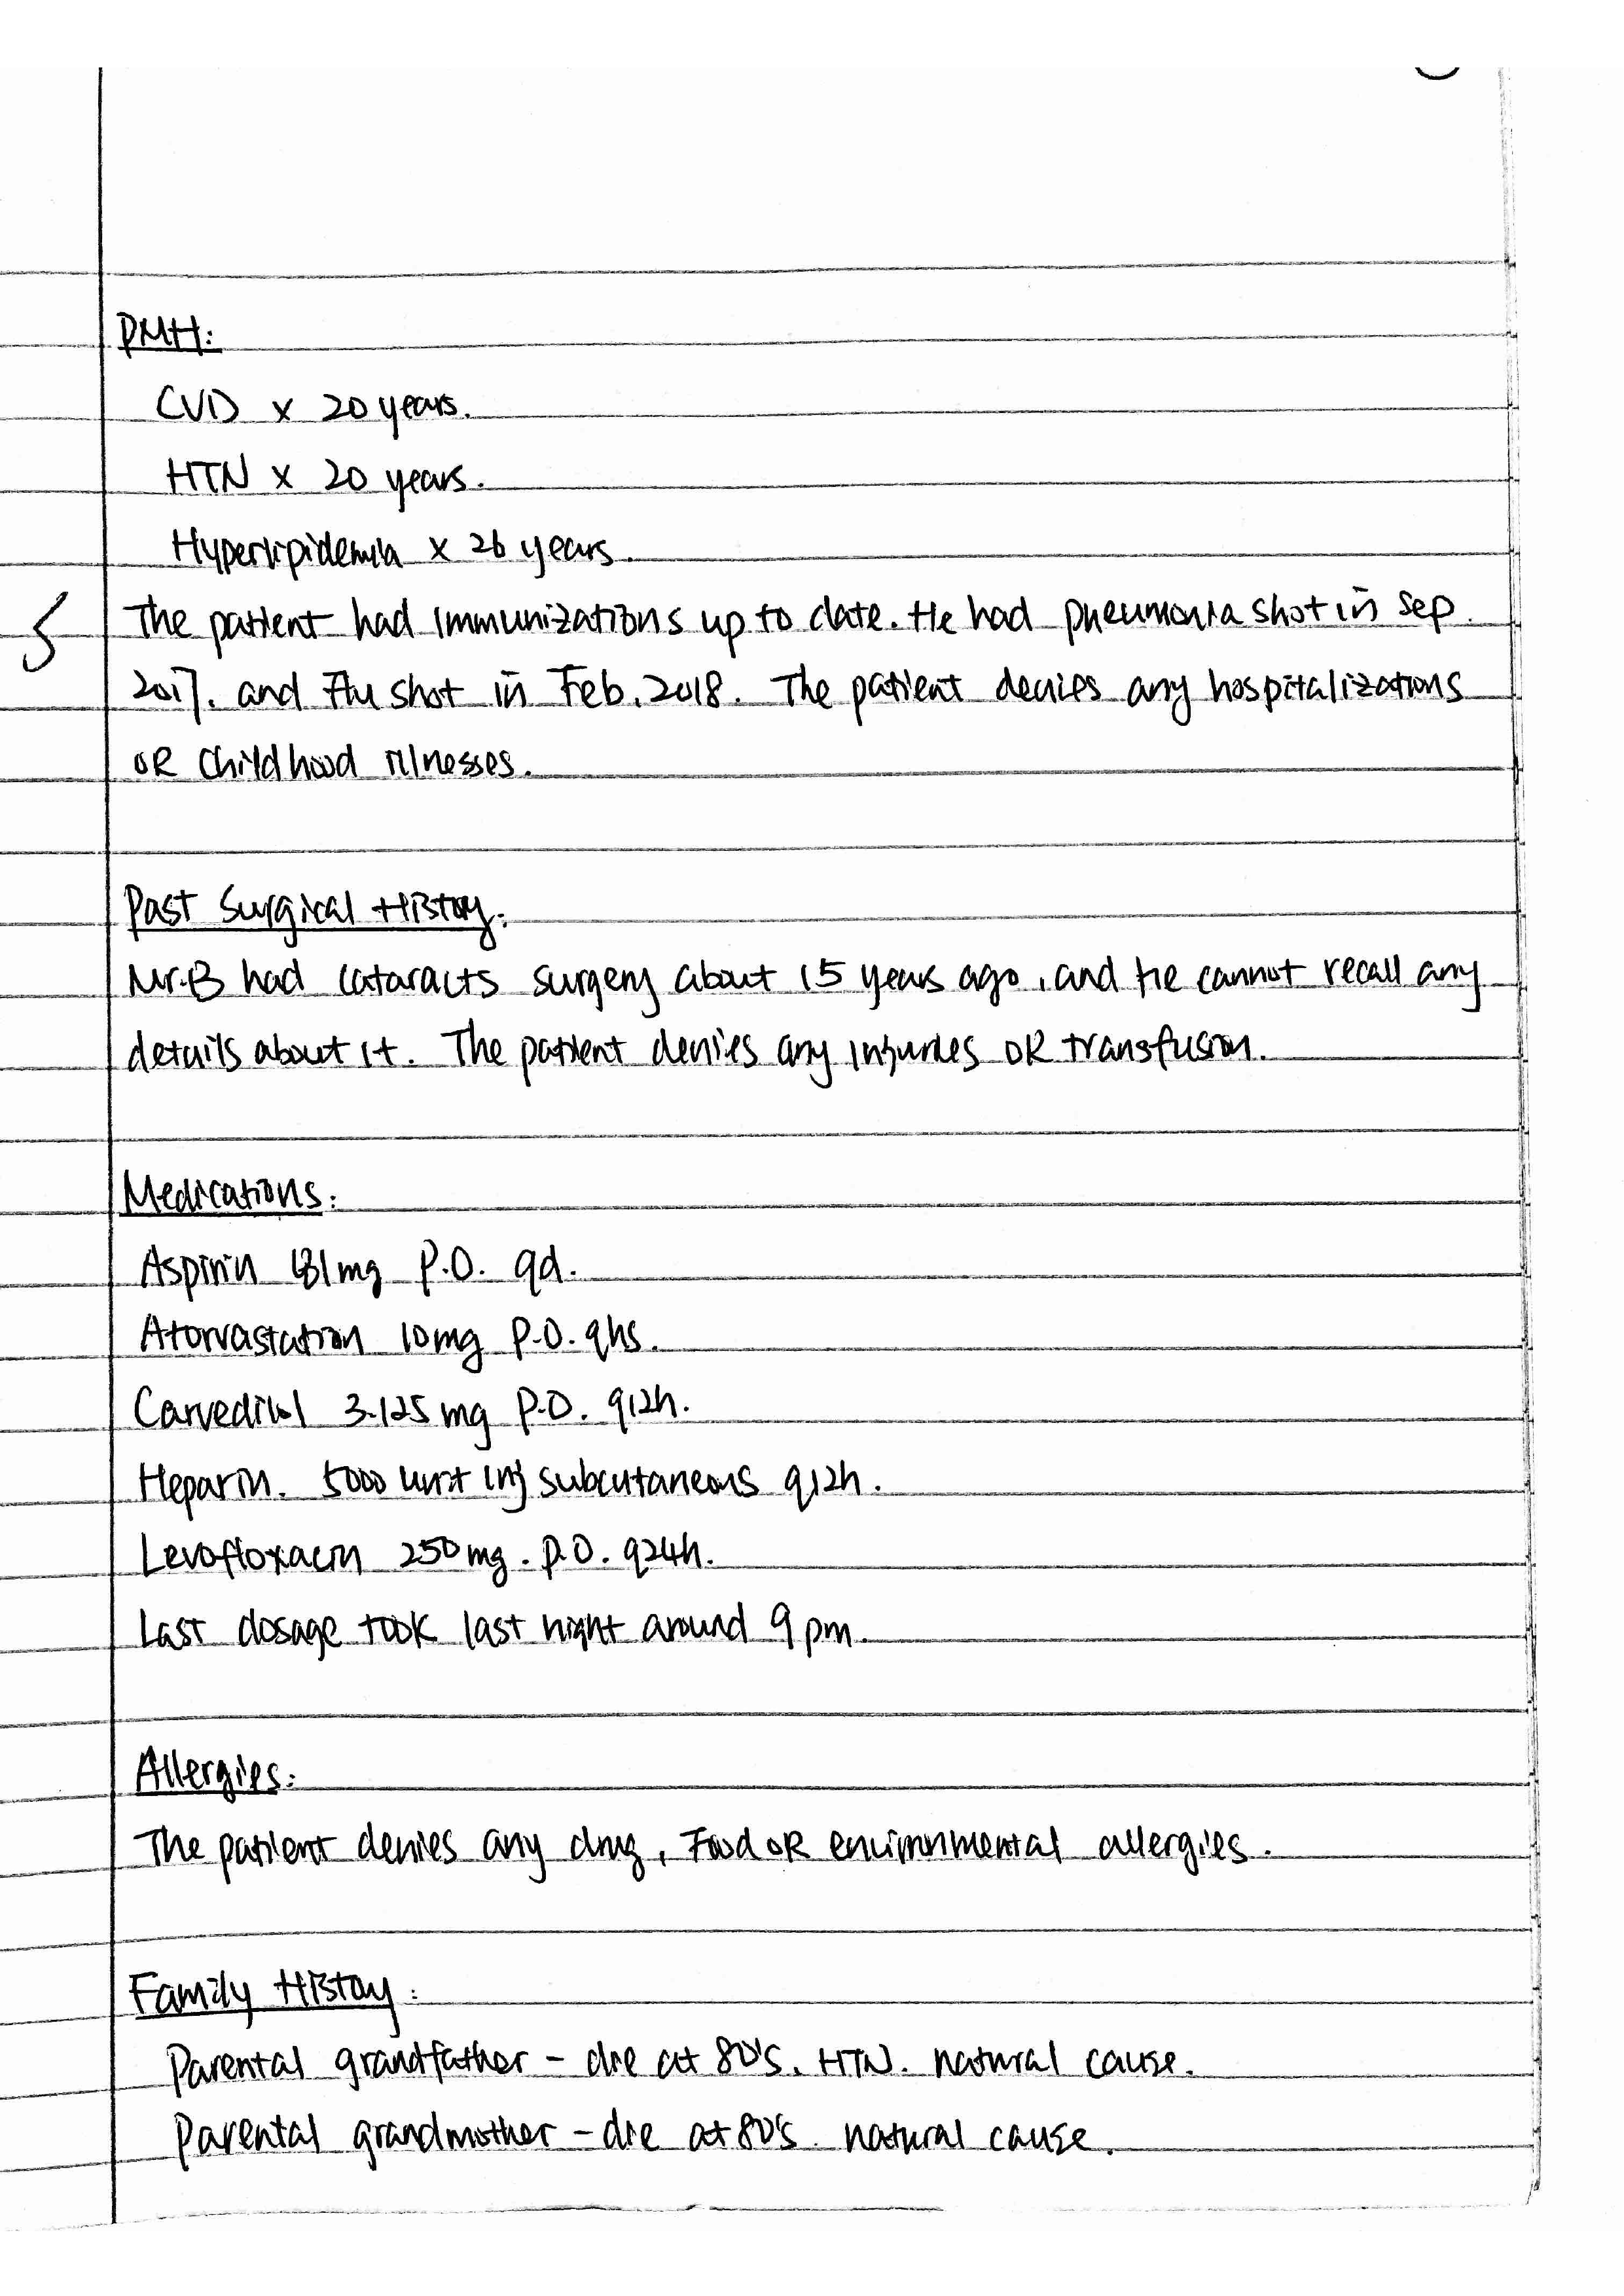 PMH:
CVD x 20 years.
HTN x 20 years.
Hyperlipidemia x 26 years.
The patient had immunizations up to date. He had pneumonia shot in Sep.
5
2017. and Flu shot in Feb. 2018. The patient denies any hospitalizations
OR childhood illnesses.
Past Surgical History:
Mr.B had cataracts surgery about 15 years ago, and He cannot recall any
details about it. The patient denies any injuries OR transfusion.
Medications:
Aspirin 81mg P.O. qd.
Atorvastation 10mg P.O. qhs.
Carvedilol 3.125 mg P.O. q12h.
Heparin. 5000 unit inj subcutaneous q12h.
Levofloxacin 250mg. P.O. q24h.
Last dosage took last night around 9 pm.
Allergies:
The patient denies any drug, Food OR environmental allergies.
Family History:
Parental grandfather - die at 80's. HTN. natural cause.
Parental grandmother - die at 80's. natural cause.